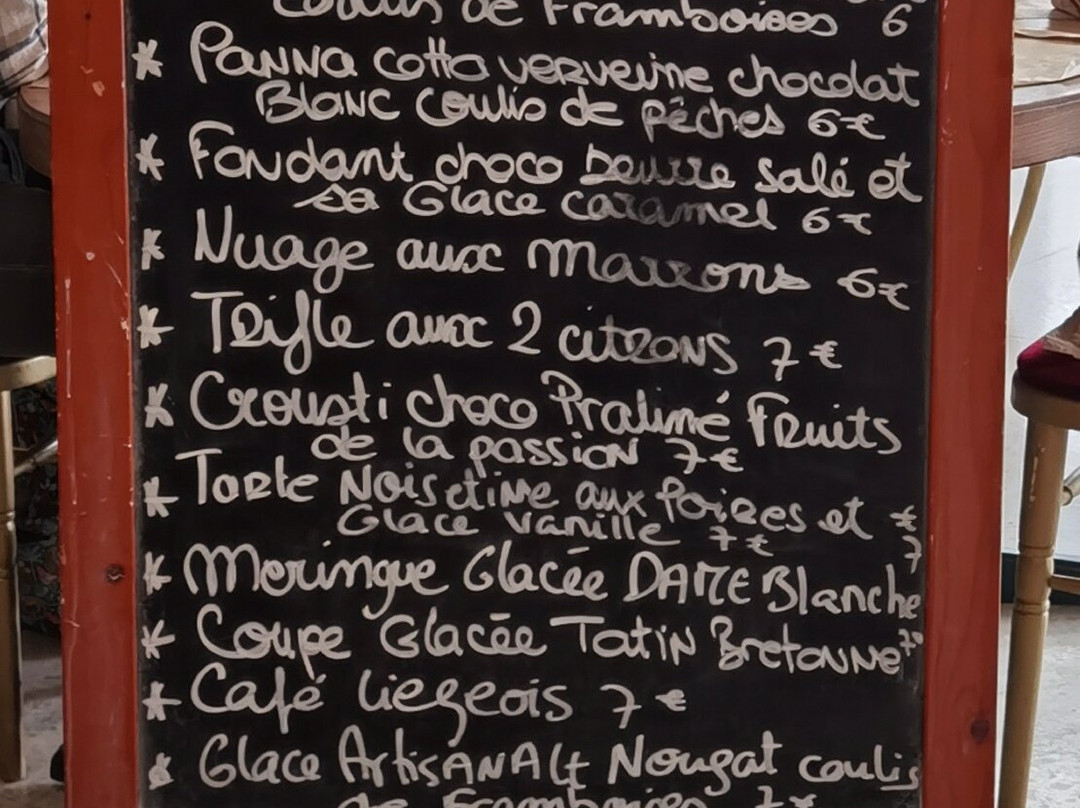 coulis de Framboises 6
* Panna cotta verveine chocolat
Blanc coulis de pêches 6€
* Fondant choco beurre salé et
sa Glace caramel 6€
* Nuage aux Marrons 6€
* Trifle aux 2 citrons 7€
* Crousti choco Praliné Fruits
de la passion 7€
* Tarte Noisetine aux poires et €
Glace vanille 7€ 7
* Meringue Glacée DAME Blanche
* Coupe Glacée Tatin Bretonne 7€
* Café liegeois 7€
* Glace Artisanale Nougat coulis
de Framboises 7€